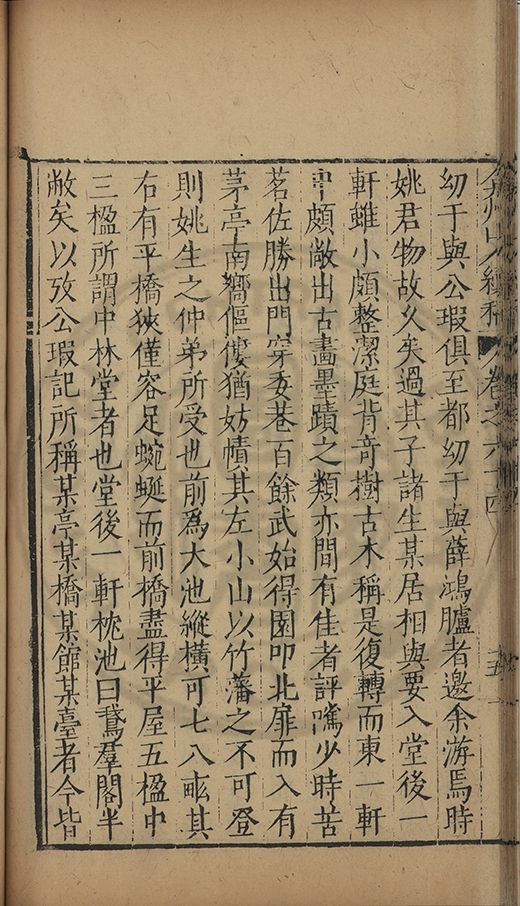 弇州山人續稿 卷之六十四 五
幼于與公瑕俱至都幼于與薛鴻臚者邀余游焉時
姚君物故久矣過其子諸生某居相與要入堂後一
軒雖小頗整潔庭背竒樹古木稱是復轉而東一軒
中頗敞出古畵墨蹟之類亦間有佳者評噣少時苦
茗佐勝出門穿委巷百餘武始得園叩北扉而入有
茅亭南嚮傴僂猶妨幘其左小山以竹藩之不可登
則姚生之仲弟所受也前爲大池縱橫可七八畝其
右有平橋狹僅容足蜿蜒而前橋盡得平屋五楹中
三楹所謂中林堂者也堂後一軒枕池曰鵞羣閣半
敝矣以攷公瑕記所稱某亭某橋某館某臺者今皆